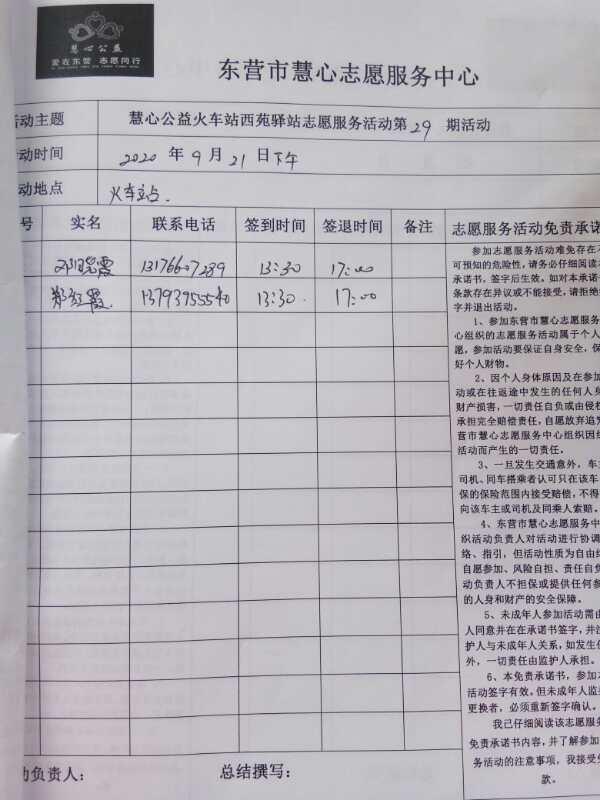 慧心公益
爱在东营 志愿同行
东营市慧心志愿服务中心
活动主题 慧心公益火车站西苑驿站志愿服务活动第29期活动
动时间 2020年9月21日下午
动地点 火车站.
号 实名 联系电话 签到时间 签退时间 备注 志愿服务活动免责承诺
晓霞 13176607239 13:30 17:00
郑红霞 13793955540 13:30. 17:00
参加志愿服务活动难免存在不
可预知的危险性，请务必仔细阅读本
承诺书，签字后生效。如对本承诺书
条款存在异议或不能接受，请拒绝
字并退出活动。
1、参加东营市慧心志愿服务
心组织的志愿服务活动属于个人
愿，参加活动要保证自身安全，保
好个人财物。
2、因个人身体原因及在参加
动或在往返途中发生的任何人身
财产损害，一切责任自负或由侵权
承担完全赔偿责任，自愿放弃追究
营市慧心志愿服务中心组织因组
活动而产生的一切责任。
3、一旦发生交通意外，车主
司机、同车搭乘者认可只在该车
保的保险范围内接受赔偿，不得
向该车主或司机及同乘人索赔。
4、东营市慧心志愿服务中
织活动负责人对活动进行协调
络、指引，但活动性质为自由组
自愿参加、风险自担、责任自负
动负责人不担保或提供任何参
的人身和财产的安全保障。
5、未成年人参加活动需由
人同意并在在承诺书签字，并注
护人与未成年人关系，如发生
外，一切责任由监护人承担。
6、本免责承诺书，参加本
活动签字有效。但未成年人监
更换者，必须重新签字确认。
我已仔细阅读该志愿服
免责承诺书内容，并了解参加
务活动的注意事项，我接受免
款。
动负责人： 总结撰写：